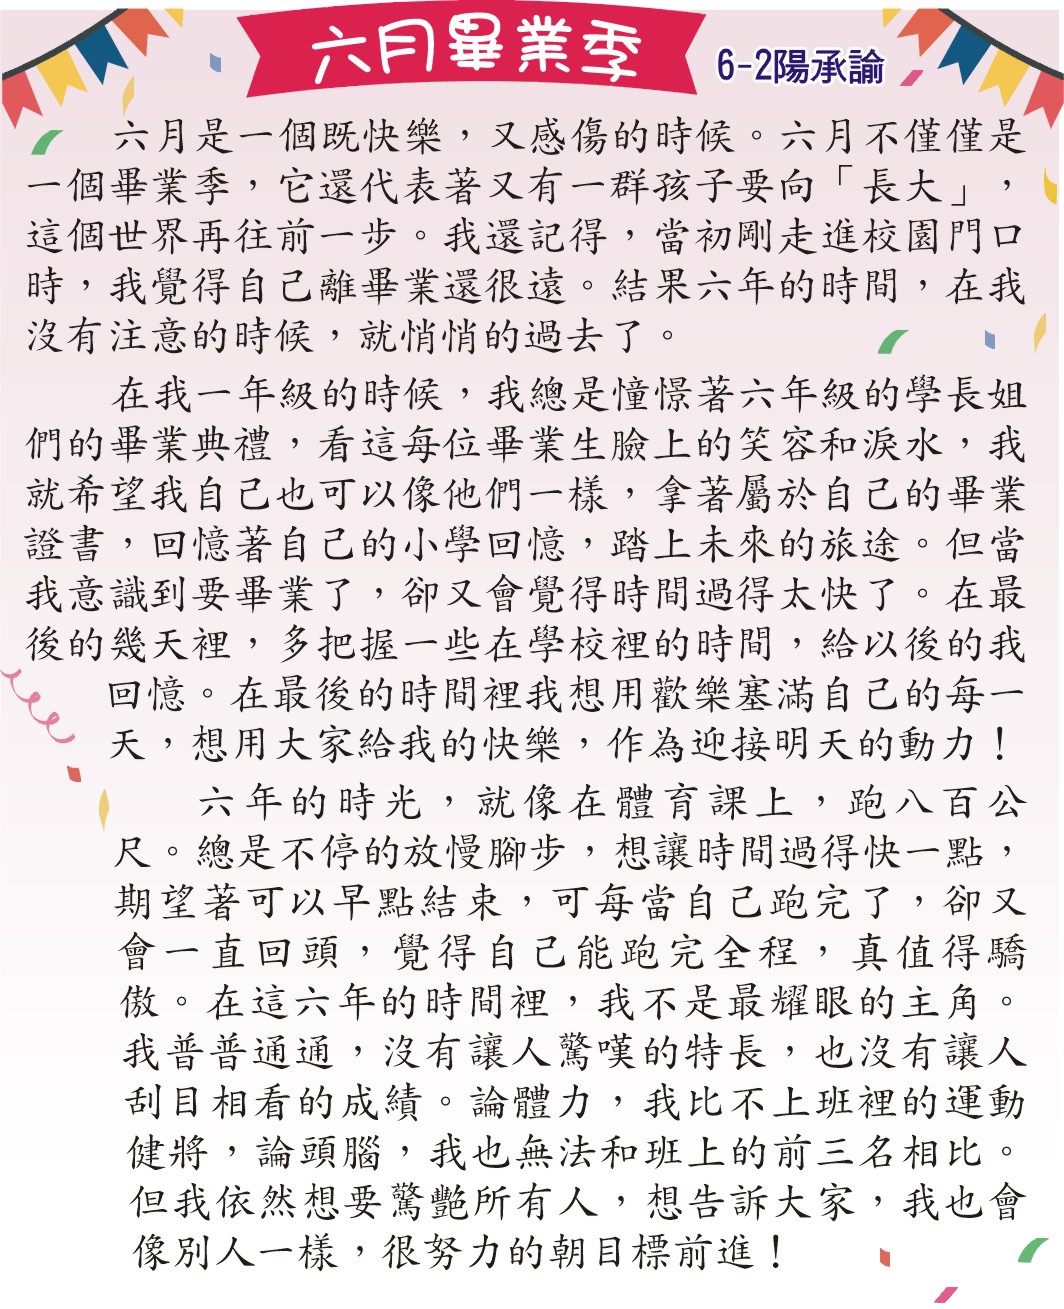 六月畢業季
6-2陽承諭
六月是一個既快樂，又感傷的時候。六月不僅僅是
一個畢業季，它還代表著又有一群孩子要向「長大」，
這個世界再往前一步。我還記得，當初剛走進校園門口
時，我覺得自己離畢業還很遠。結果六年的時間，在我
沒有注意的時候，就悄悄的過去了。
在我一年級的時候，我總是憧憬著六年級的學長姐
們的畢業典禮，看這每位畢業生臉上的笑容和淚水，我
就希望我自己也可以像他們一樣，拿著屬於自己的畢業
證書，回憶著自己的小學回憶，踏上未來的旅途。但當
我意識到要畢業了，卻又會覺得時間過得太快了。在最
後的幾天裡，多把握一些在學校裡的時間，給以後的我
回憶。在最後的時間裡我想用歡樂塞滿自己的每一
天，想用大家給我的快樂，作為迎接明天的動力！
六年的時光，就像在體育課上，跑八百公
尺。總是不停的放慢腳步，想讓時間過得快一點，
期望著可以早點結束，可每當自己跑完了，卻又
會一直回頭，覺得自己能跑完全程，真值得驕
傲。在這六年的時間裡，我不是最耀眼的主角。
我普普通通，沒有讓人驚嘆的特長，也沒有讓人
刮目相看的成績。論體力，我比不上班裡的運動
健將，論頭腦，我也無法和班上的前三名相比。
但我依然想要驚艷所有人，想告訴大家，我也會
像別人一樣，很努力的朝目標前進！